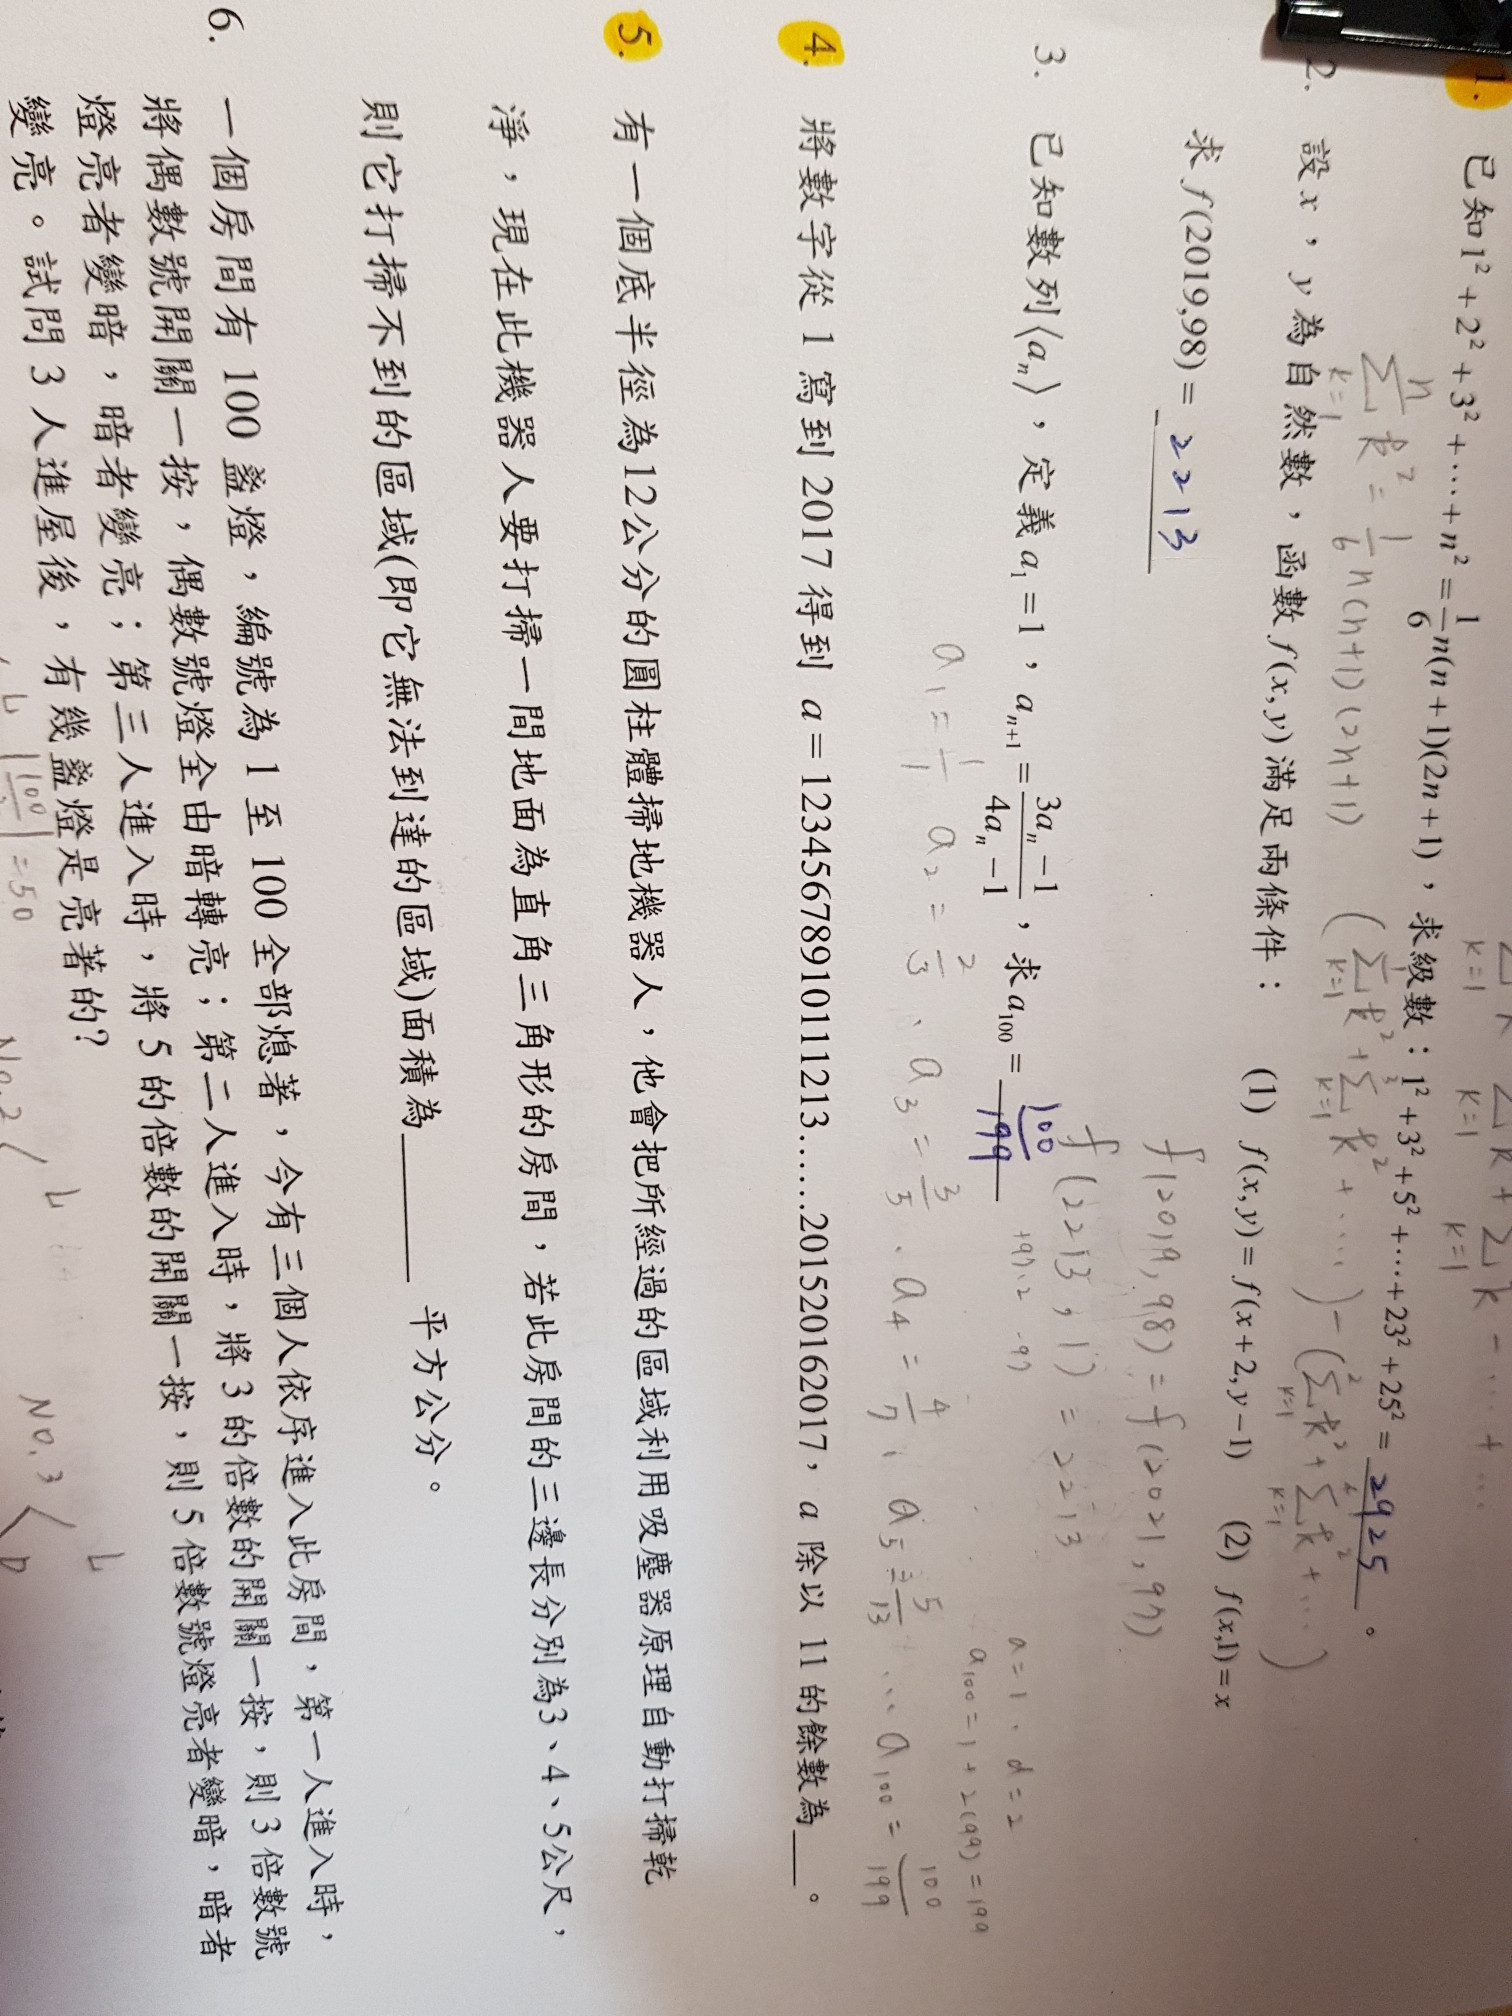 1. 已知1² + 2² + 3² + … + n² = 1/6 n(n+1)(2n+1)，求級數：1² + 3² + 5² + … + 23² + 25² = 2925。
2. 設x，y為自然數，函數f(x,y)滿足兩條件： (1) f(x,y) = f(x+2,y−1) (2) f(x,1) = x
求f(2019,98) = 2213
f(2019,98) = f(2021,97)
f(2213,1) = 2213
+97.2 -97
3. 已知數列⟨aₙ⟩，定義a₁ = 1，aₙ₊₁ = (3aₙ−1)/(4aₙ−1)，求a₁₀₀ = 100/199
a=1、d=2
a₁₀₀ = 1 + 2(99) = 199
a₁ = 1/1 a₂ = 2/3、a₃ = 3/5、a₄ = 4/7、a₅ = 5/13 … a₁₀₀ = 100/199
4. 將數字從 1 寫到 2017 得到 a = 12345678910111213……201520162017，a 除以 11 的餘數為__。
5. 有一個底半徑為12公分的圓柱體掃地機器人，他會把所經過的區域利用吸塵器原理自動打掃乾
淨，現在此機器人要打掃一間地面為直角三角形的房間，若此房間的三邊長分別為3、4、5公尺，
則它打掃不到的區域(即它無法到達的區域)面積為______ 平方公分。
6. 一個房間有 100 盞燈，編號為 1 至 100 全部熄著，今有三個人依序進入此房間，第一人進入時，
將偶數號開關一按，偶數號燈全由暗轉亮；第二人進入時，將 3 的倍數的開關一按，則 3 倍數號
燈亮者變暗，暗者變亮；第三人進入時，將 5 的倍數的開關一按，則 5 倍數號燈亮者變暗，暗者
變亮。試問 3 人進屋後，有幾盞燈是亮著的?
= 50
No.2 L
No.3 L D